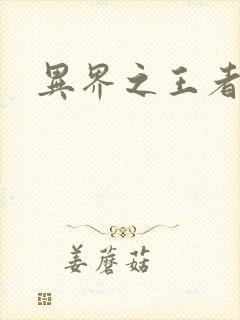 異界之王者
姜蘑菇